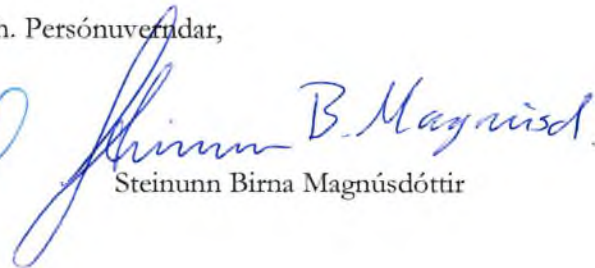 h. Persónuverndar,
Steinunn B. Magnúsd.
Steinunn Birna Magnúsdóttir